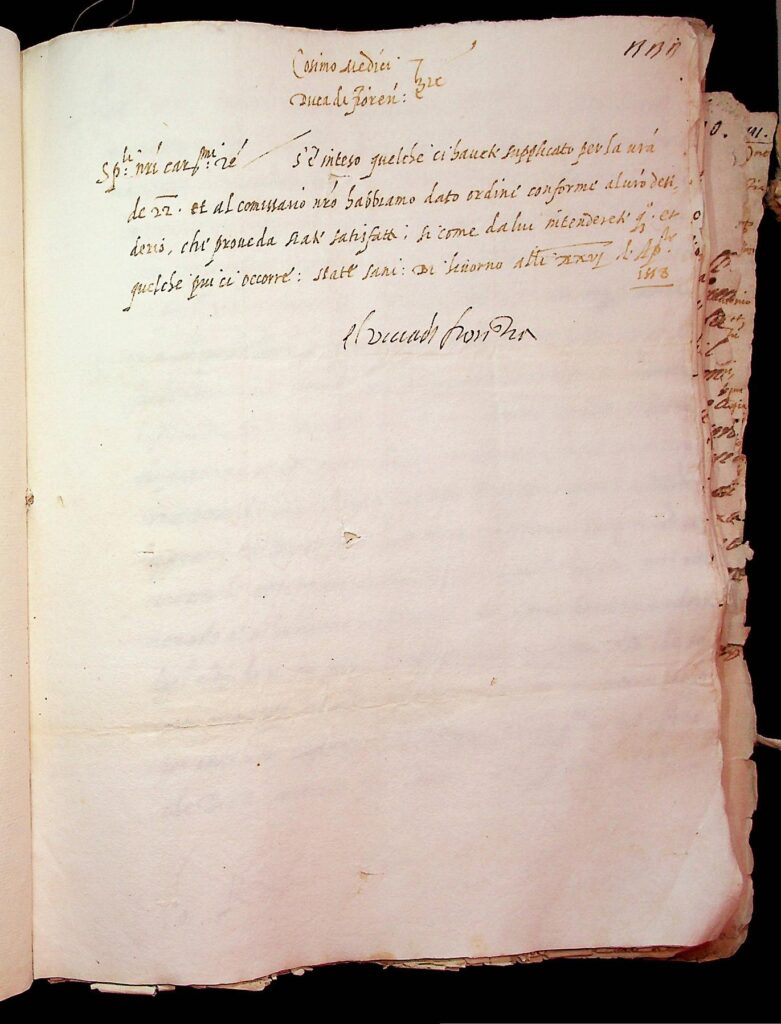 Cosimo Medici
Duca di Fioren: etc
Sp.li nri car.mi etc S'è inteso quelche ci havete supplicato per la vrá
de 22. et al comissario nró habbiamo dato ordine conforme al vró desi,
derio, che proveda siate satisfatti; si come da lui intenderete q.o et
quelche piu ci occorre: state sani: Di livorno alli xxvj d'Ap.le
1548
el duca di fiorenza